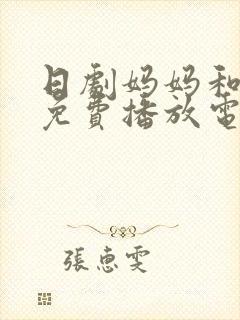 日劇妈妈和
免費播放電
張惠雯